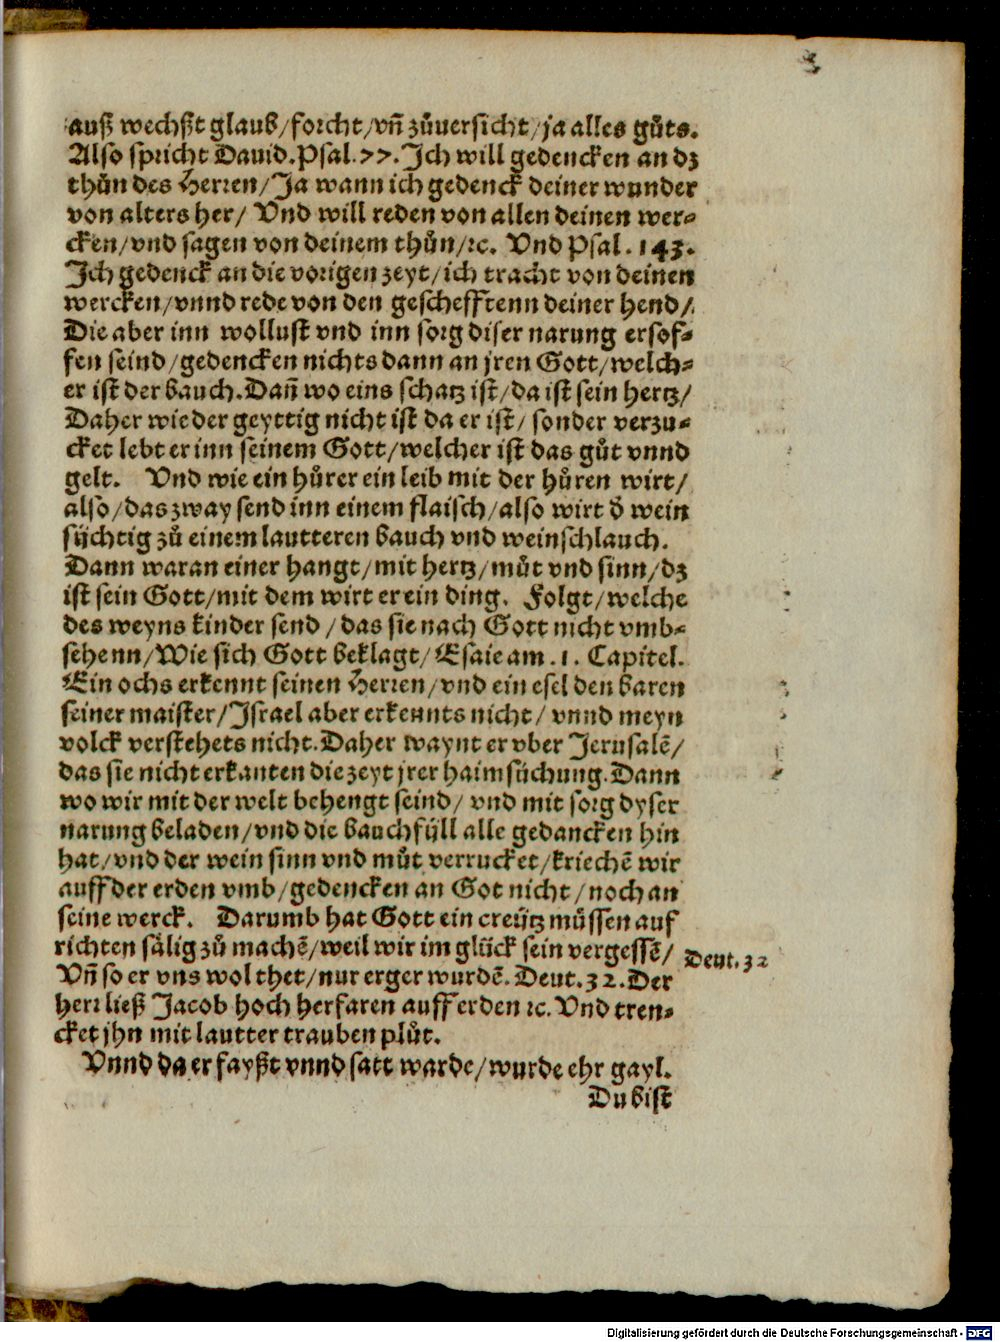 3
auß wechßt glaub/forcht/vñ zůuersicht/ja alles gůts.
Also spricht Dauid.Psal.77.Ich will gedencken an dz
thůn des Herren/Ja wann ich gedenck deiner wunder
von alters her/ Vnd will reden von allen deinen wer-
cken/vnd sagen von deinem thůn/ꝛc. Vnd Psal.143.
Ich gedenck an die vorigen zeyt/ich tracht von deinen
wercken/vnnd rede von den geschefftenn deiner hend/
Die aber inn wollust vnd inn sorg diser narung ersof-
fen seind/gedencken nichts dann an jren Gott/welch-
er ist der bauch.Dañ wo eins schatz ist/da ist sein hertz/
Daher wie der geyttig nicht ist da er ist/ sonder verzu-
cket lebt er inn seinem Gott/welcher ist das gůt vnnd
gelt. Vnd wie ein hůrer ein leib mit der hůren wirt/
also/das zway send inn einem flaisch/also wirt d̕ wein
süchtig zů einem lautteren bauch vnd weinschlauch.
Dann waran einer hangt/mit hertz/můt vnd sinn/dz
ist sein Gott/mit dem wirt er ein ding. Folgt/welche
des weyns kinder send/das sie nach Gott nicht vmb-
sehenn/Wie sich Gott beklagt/Esaie am.1.Capitel.
Ein ochs erkennt seinen Herren/vnd ein esel den baren
seiner maister/Israel aber erkennts nicht/ vnnd meyn
volck verstehets nicht.Daher waynt er vber Jerusalē/
das sie nicht erkanten die zeyt jrer haimsüchung.Dann
wo wir mit der welt behengt seind/ vnd mit sorg dyser
narung beladen/vnd die bauchfüll alle gedancken hin
hat/vnd der wein sinn vnd můt verrucket/kriechē wir
auff der erden vmb/gedencken an Got nicht/noch an
seine werck. Darumb hat Gott ein creütz müssen auf
richten sälig zů machē/weil wir im glück sein vergessē/
Deut.32
Vñ so er vns wol thet/nur erger wurdē.Deut.32.Der
herr ließ Jacob hoch herfaren auff erden ꝛc.Vnd tren-
cket jhn mit lautter trauben plůt.
Vnnd da er fayßt vnnd satt warde/wurde ehr gayl.
Du bist
Digitalisierung gefördert durch die Deutsche Forschungsgemeinschaft - DFG